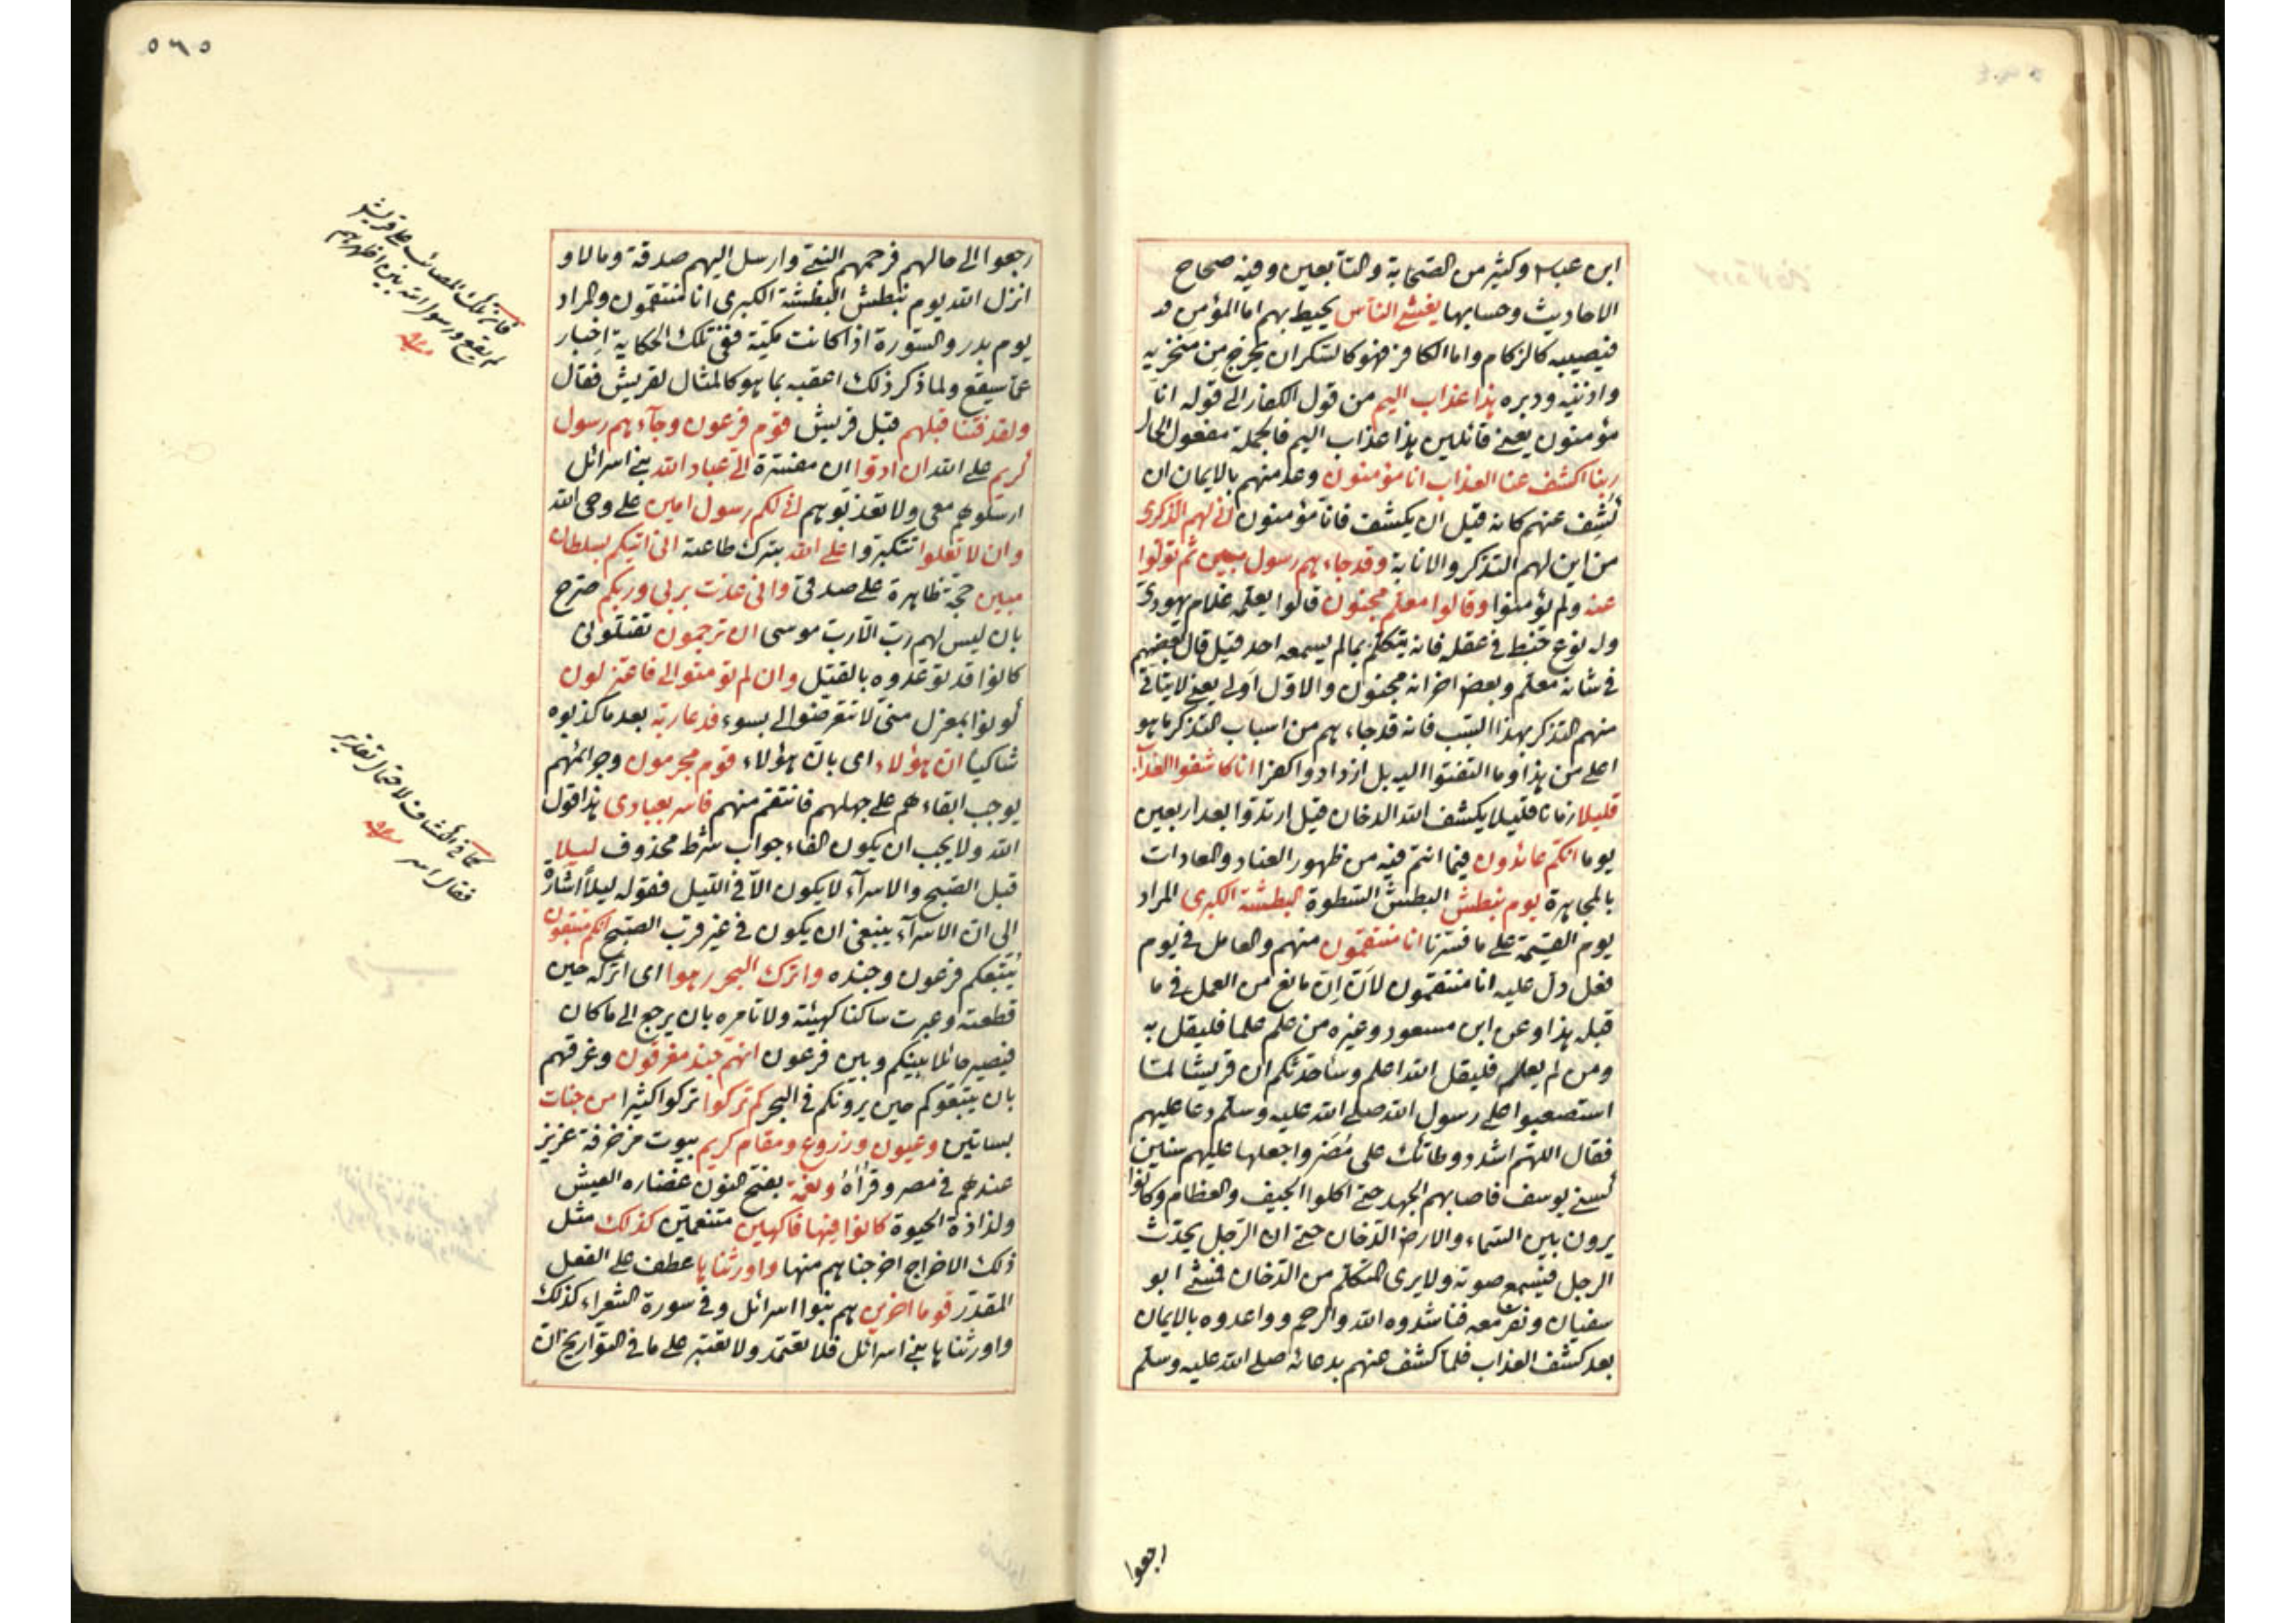 ابن عباس وكثير من الصحابة والتابعين وفيه صحاح
الاحاديث وحسابها يغشى الناس يحيط بهم اما المؤمن
فيصيبه كالزكام واما الكافر فهو كالسكران يخرج من منخزيه
واذنيه ودبره هذا عذاب اليم من قول الكفار الى قوله انا
مؤمنون يعني قائلين هذا عذاب اليم فالجملة مفعول الحال
ربنا اكشف عنا العذاب انا مؤمنون وعد منهم بالايمان ان
كشف عنهم كانه قيل ان يكشف فانا مؤمنون انى لهم الذكرى
من اين لهم التذكر والانابة وقد جاءهم رسول مبين ثم تولوا
عنه ولم يؤمنوا وقالوا معلم مجنون قالوا يعلمه غلام يهودى
وله نوع خبط في عقله فانه يتكلم بمالم يسمعه احد قيل قال بعضهم
في شانه معلم وبعض اخر انه مجنون والاول اولى يعني لا يتاتى
منهم التذكر بهذا السبب فانه قد جاءهم من اسباب التذكر ما هو
اعلى من هذا وما التفتوا اليه بل ازدادوا كفرا انا كاشفوا العذاب
قليلا زمانا قليلا يكشف الله الدخان قيل ارتدوا بعد اربعين
يوما انكم عائدون فيما انتم فيه من ظهور العناد والعادات
بالمجاهرة يوم نبطش البطش السطوة البطشة الكبرى المراد
يوم القيمة على ما فسرنا انا منتقمون منهم والعامل في يوم
فعل دل عليه انا منتقمون لان ان مانع من العمل في ما
قبله هذا وعن ابن مسعود وغيره من علم علما فليقل به
ومن لم يعلم فليقل الله اعلم وساحدثكم ان قريشا لما
استصعبوا على رسول الله صلى الله عليه وسلم دعا عليهم
فقال اللهم اشدد وطاتك على مضر واجعلها عليهم سنين
كسني يوسف فاصابهم الجهد حتى اكلوا الجيف والعظام وكانوا
يرون بين السماء والارض الدخان حتى ان الرجل يحدث
الرجل فيسمع صوته ولا يرى المتكلم من الدخان فمشى ابو
سفيان ونفر معه فناشدوه الله والرحم وواعدوه بالايمان
بعد كشف العذاب فلما كشف عنهم بدعائه صلى الله عليه وسلم
رجعوا
٥٦٥
رجعوا الى حالهم فرحمهم النبي وارسل اليهم صدقة ومالا و
انزل الله يوم نبطش البطشة الكبرى انا منتقمون والمراد
يوم بدر والسورة اذا كانت مكية ففي تلك الحكاية اخبار
عما سيقع ولما ذكر ذلك اعقبه بما هو كالمثال لقريش فقال
ولقد فتنا قبلهم قبل قريش قوم فرعون وجاءهم رسول
كريم على الله ان ادوا ان مفسرة الى عباد الله بني اسرائل
ارسلوهم معي ولا تعذبوهم انى لكم رسول امين على وحى الله
وان لا تعلوا تتكبروا على الله بترك طاعته انى اتيكم بسلطان
مبين حجة ظاهرة على صدقى وانى عذت بربى وربكم صرح
بان ليس لهم رب الا رب موسى ان ترجمون تقتلونى
كانوا قد توعدوه بالقتل وان لم تؤمنوا لى فاعتزلون
كونوا بمعزل منى لا تتعرضوا لى بسوء فدعا ربه بعد ما كذبوه
شاكيا ان هؤلاء اى بان هؤلاء قوم مجرمون وجرائمهم
يوجب ابقاءهم على جهلهم فانتقم منهم فاسر بعبادى هذا قول
الله ولا يجب ان يكون الفاء جواب شرط محذوف ليلا
قبل الصبح والاسراء لا يكون الا في الليل فقوله ليلا اشارة
الى ان الاسراء ينبغى ان يكون في غير قرب الصبح انكم متبعون
يتبعكم فرعون وجنده واترك البحر رهوا اى اتركه حين
قطعته وعبرت ساكنا كهيئته ولا تامره بان يرجع الى ما كان
فيصير حائلا بينكم وبين فرعون انهم جند مغرقون وغرقهم
بان يتبعوكم حين يرونكم في البحر كم تركوا تركوا كثيرا من جنات
بساتين وعيون وزروع ومقام كريم بيوت مزخرفة عزيز
عندهم في مصر وقراه ونعمة بفتح النون غضاره العيش
ولذاذة الحيوة كانوا فيها فاكهين متنعمين كذلك مثل
ذلك الاخراج اخرجناهم منها واورثناها عطف على الفعل
المقدر قوما اخرين هم بنوا اسرائل وفي سورة الشعراء كذلك
واورثناها بني اسرائل فلا تعتمد ولا تعتبر على ما في التواريخ ان
فان تلك المصائب على قريش
لم يقع ورسول الله بين اظهرهم
كما في الكشاف لاحتمال تقدير
فقال اسر